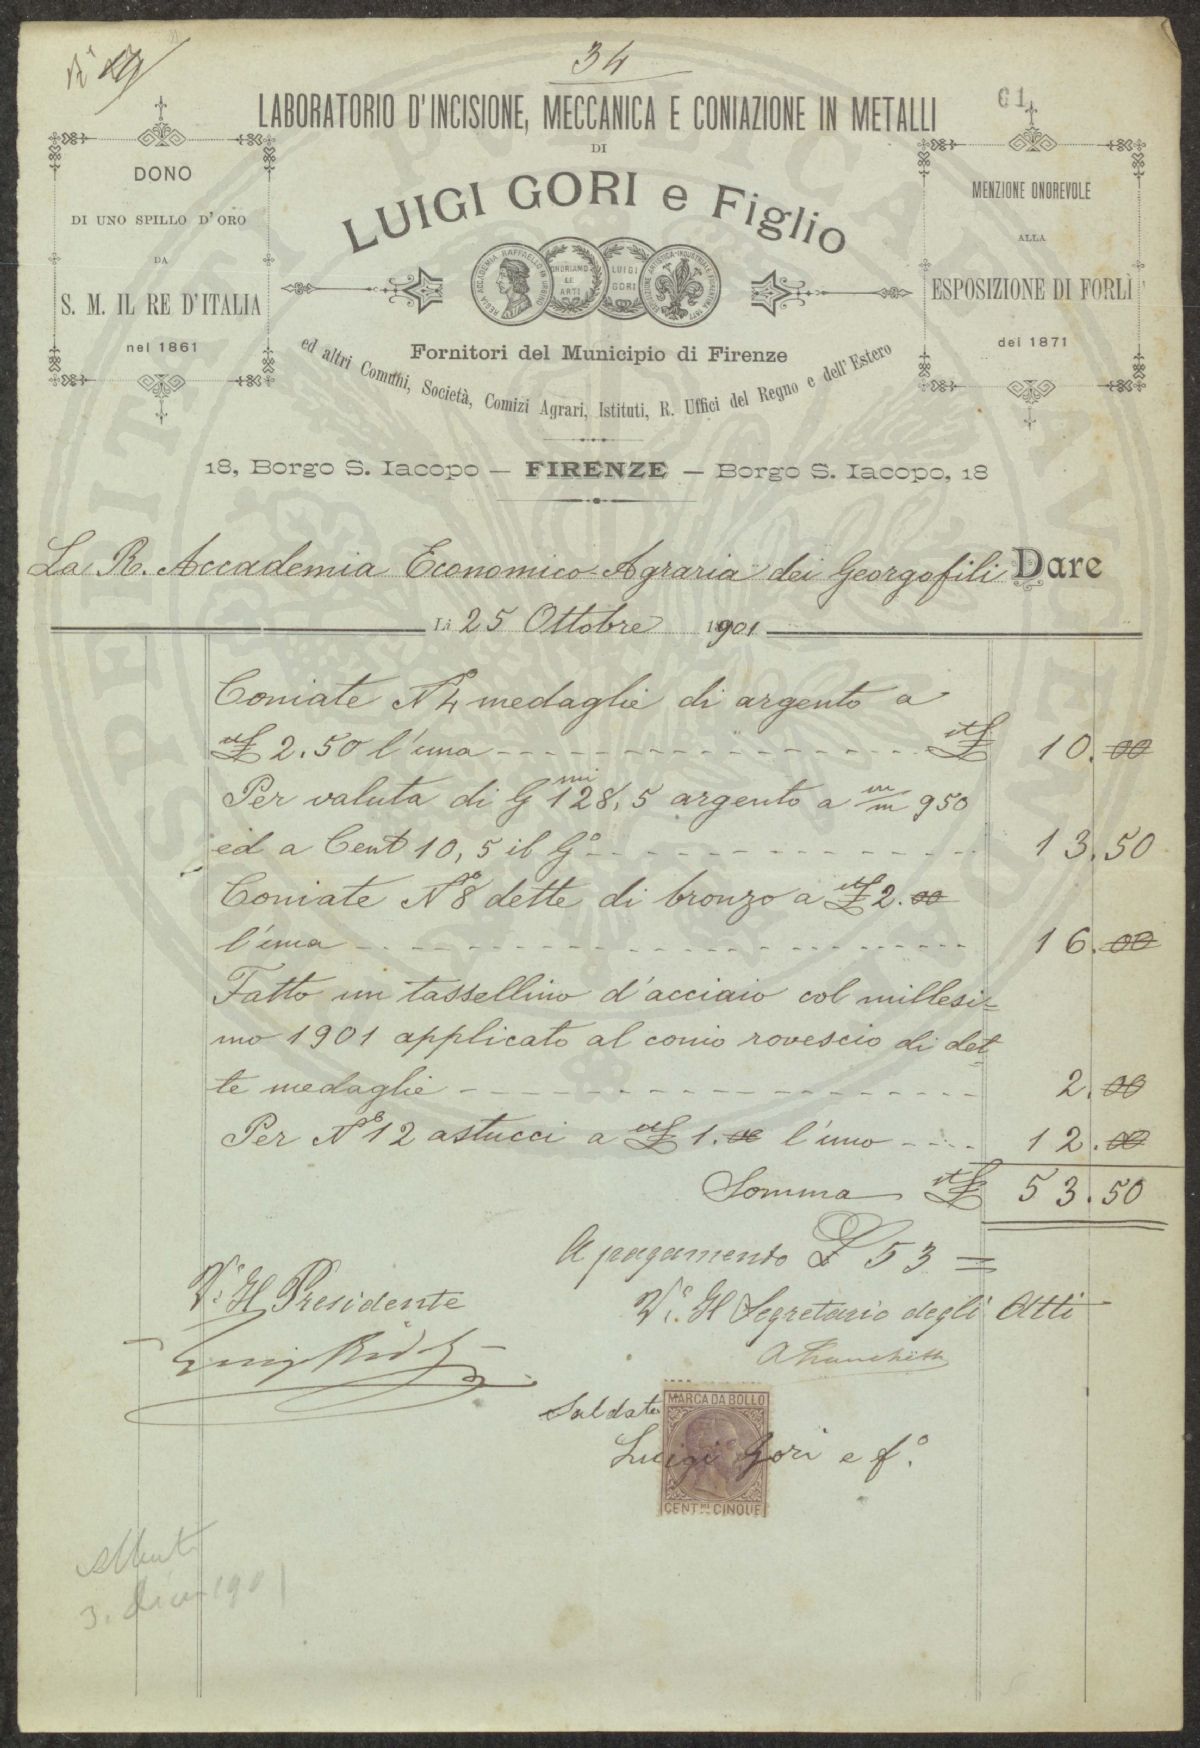 34
61
LABORATORIO D'INCISIONE, MECCANICA E CONIAZIONE IN METALLI
DI
LUIGI GORI e Figlio
DONO
DI UNO SPILLO D'ORO
DA
S. M. IL RE D'ITALIA
nel 1861
MENZIONE ONOREVOLE
ALLA
ESPOSIZIONE DI FORLÌ
del 1871
REGIA ACCADEMIA RAFFAELLO IN URBINO
ONORIAMO LE ARTI
LUIGI GORI
Fornitori del Municipio di Firenze
ed altri Comuni, Società, Comizi Agrari, Istituti, R. Uffici del Regno e dell'Estero
18, Borgo S. Iacopo — FIRENZE — Borgo S. Iacopo, 18
La R. Accademia Economico-Agraria dei Georgofili Dare
Li 25 Ottobre 1901
Coniate N° 4 medaglie di argento a
it£ 2.50 l'una it£ 10.00
Per valuta di G mi 128,5 argento a m/m 950
ed a Cent 10,5 il G° 13.50
Coniate N° 8 dette di bronzo a it£ 2.00
l'una 16.00
Fatto un tassellino d'acciaio col millesi=
mo 1901 applicato al conio rovescio di det=
te medaglie 2.00
Per N° 12 astucci a it£ 1.00 l'uno 12.00
Somma it£ 53.50
A pagamento £ 53 =
V° Il Presidente
V° Il Segretario degli Atti
Saldato
Luigi Gori e f°.
MARCA DA BOLLO
CENT MI CINQUE